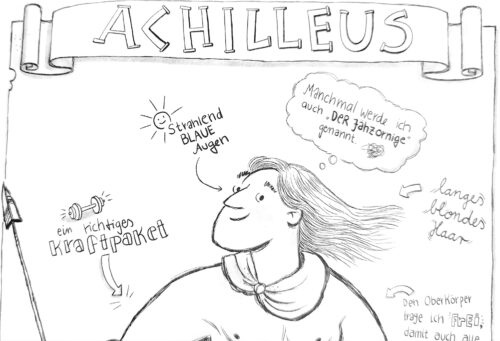 ACHILLEUS
Manchmal werde ich
auch „DER Jähzornige“
genannt.
Strahlend
BLAUE
Augen
langes
blondes
Haar
ein richtiges
Kraftpaket
Den Oberkörper
trage ich frei,
damit auch alle